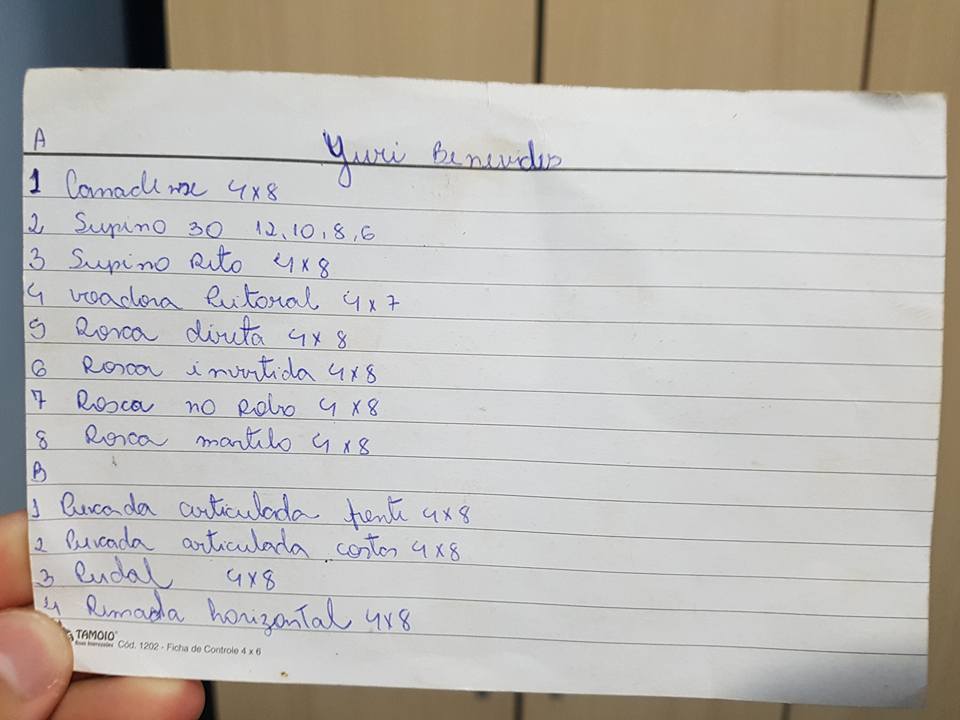 A
Yuri Benevides
1 Canadense 4x8
2 Supino 30 12,10,8,6
3 Supino Reto 4x8
4 voadora Peitoral 4x7
5 Rosca direta 4x8
6 Rosca invertida 4x8
7 Rosca no Robo 4x8
8 Rosca martelo 4x8
B
1 Puxada articulada frente 4x8
2 Puxada articulada costas 4x8
3 4x8
4 Remada horizontal 4x8
TAMOIO
Cód. 1202 - Ficha de Controle 4 x 6